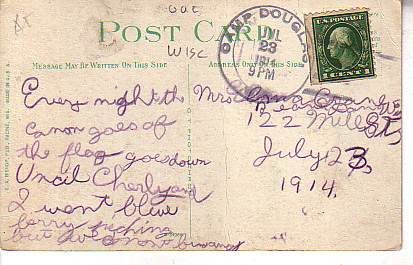 Oat
POST CARD
Wisc
MESSAGE MAY BE WRITTEN ON THIS SIDE
ADDRESS ONLY ON THIS SIDE
CAMP DOUGLAS
JUL
23
1914
9 PM
U.S. POSTAGE
1 CENT 1
Every night the
canon goes of
the flag goes down
Uncil Cherly and
I went blue
berry piching
but
Mrs
122 Mill St
July 23,
1914.